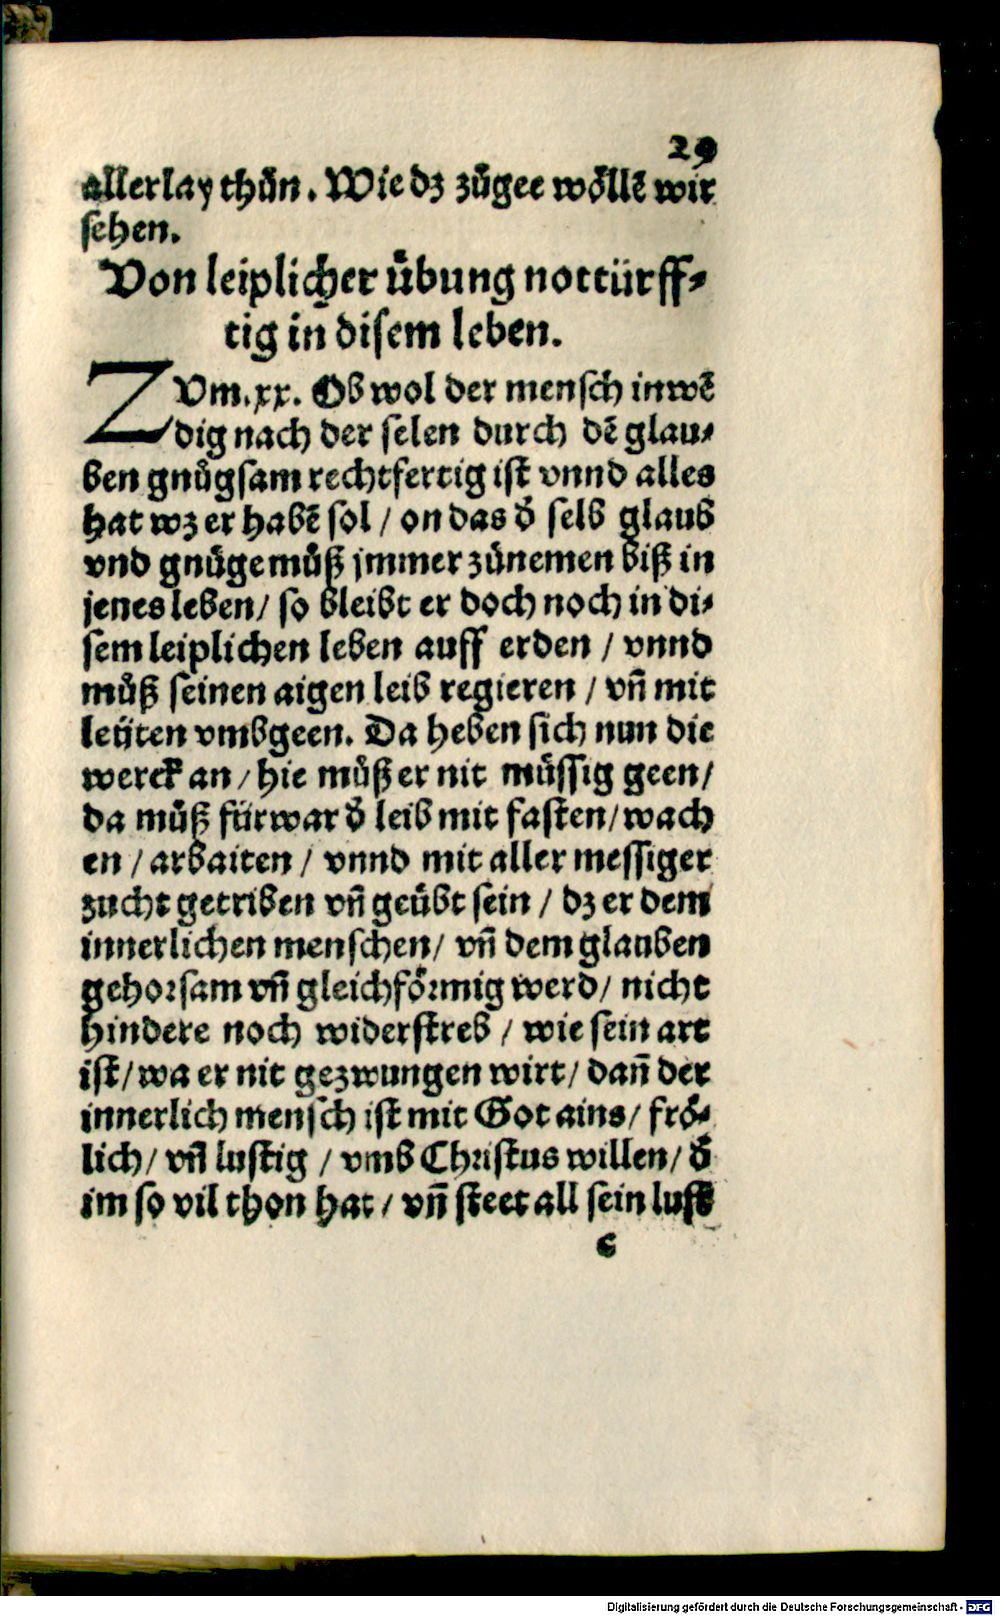 29
allerlay thůn. Wie dz zůgee wöllē wir
sehen.
Von leiplicher übung nottürff⸗
tig in disem leben.
ZVm.xx. Ob wol der mensch inwē
dig nach der selen durch dē glau⸗
ben gnůgsam rechtfertig ist vnnd alles
hat wz er habē sol / on das d̄ selb glaub
vnd gnůge můß jmmer zůnemen biß in
jenes leben / so bleibt er doch noch in di⸗
sem leiplichen leben auff erden / vnnd
můß seinen aigen leib regieren / vn̄ mit
leüten vmbgeen. Da heben sich nun die
werck an / hie můß er nit müssig geen /
da můß fürwar d̄ leib mit fasten / wach
en / arbaiten / vnnd mit aller messiger
zucht getriben vn̄ geübt sein / dz er dem
innerlichen menschen / vn̄ dem glauben
gehorsam vn̄ gleichförmig werd / nicht
hindere noch widerstreb / wie sein art
ist / wa er nit gezwungen wirt / dan̄ der
innerlich mensch ist mit Got ains / frö⸗
lich / vn̄ lustig / vmb Christus willen / d̄
im so vil thon hat / vn̄ steet all sein lust
c
Digitalisierung gefördert durch die Deutsche Forschungsgemeinschaft - DFG